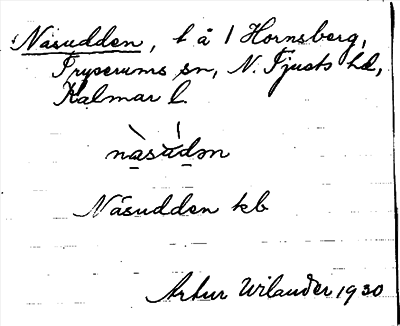 Näsudden, t å 1 Hornsberg,
Tryserums sn, N. Tjusts hd,
Kalmar l.
nàsúdən
Näsudden kb
Artur Wilander 1930